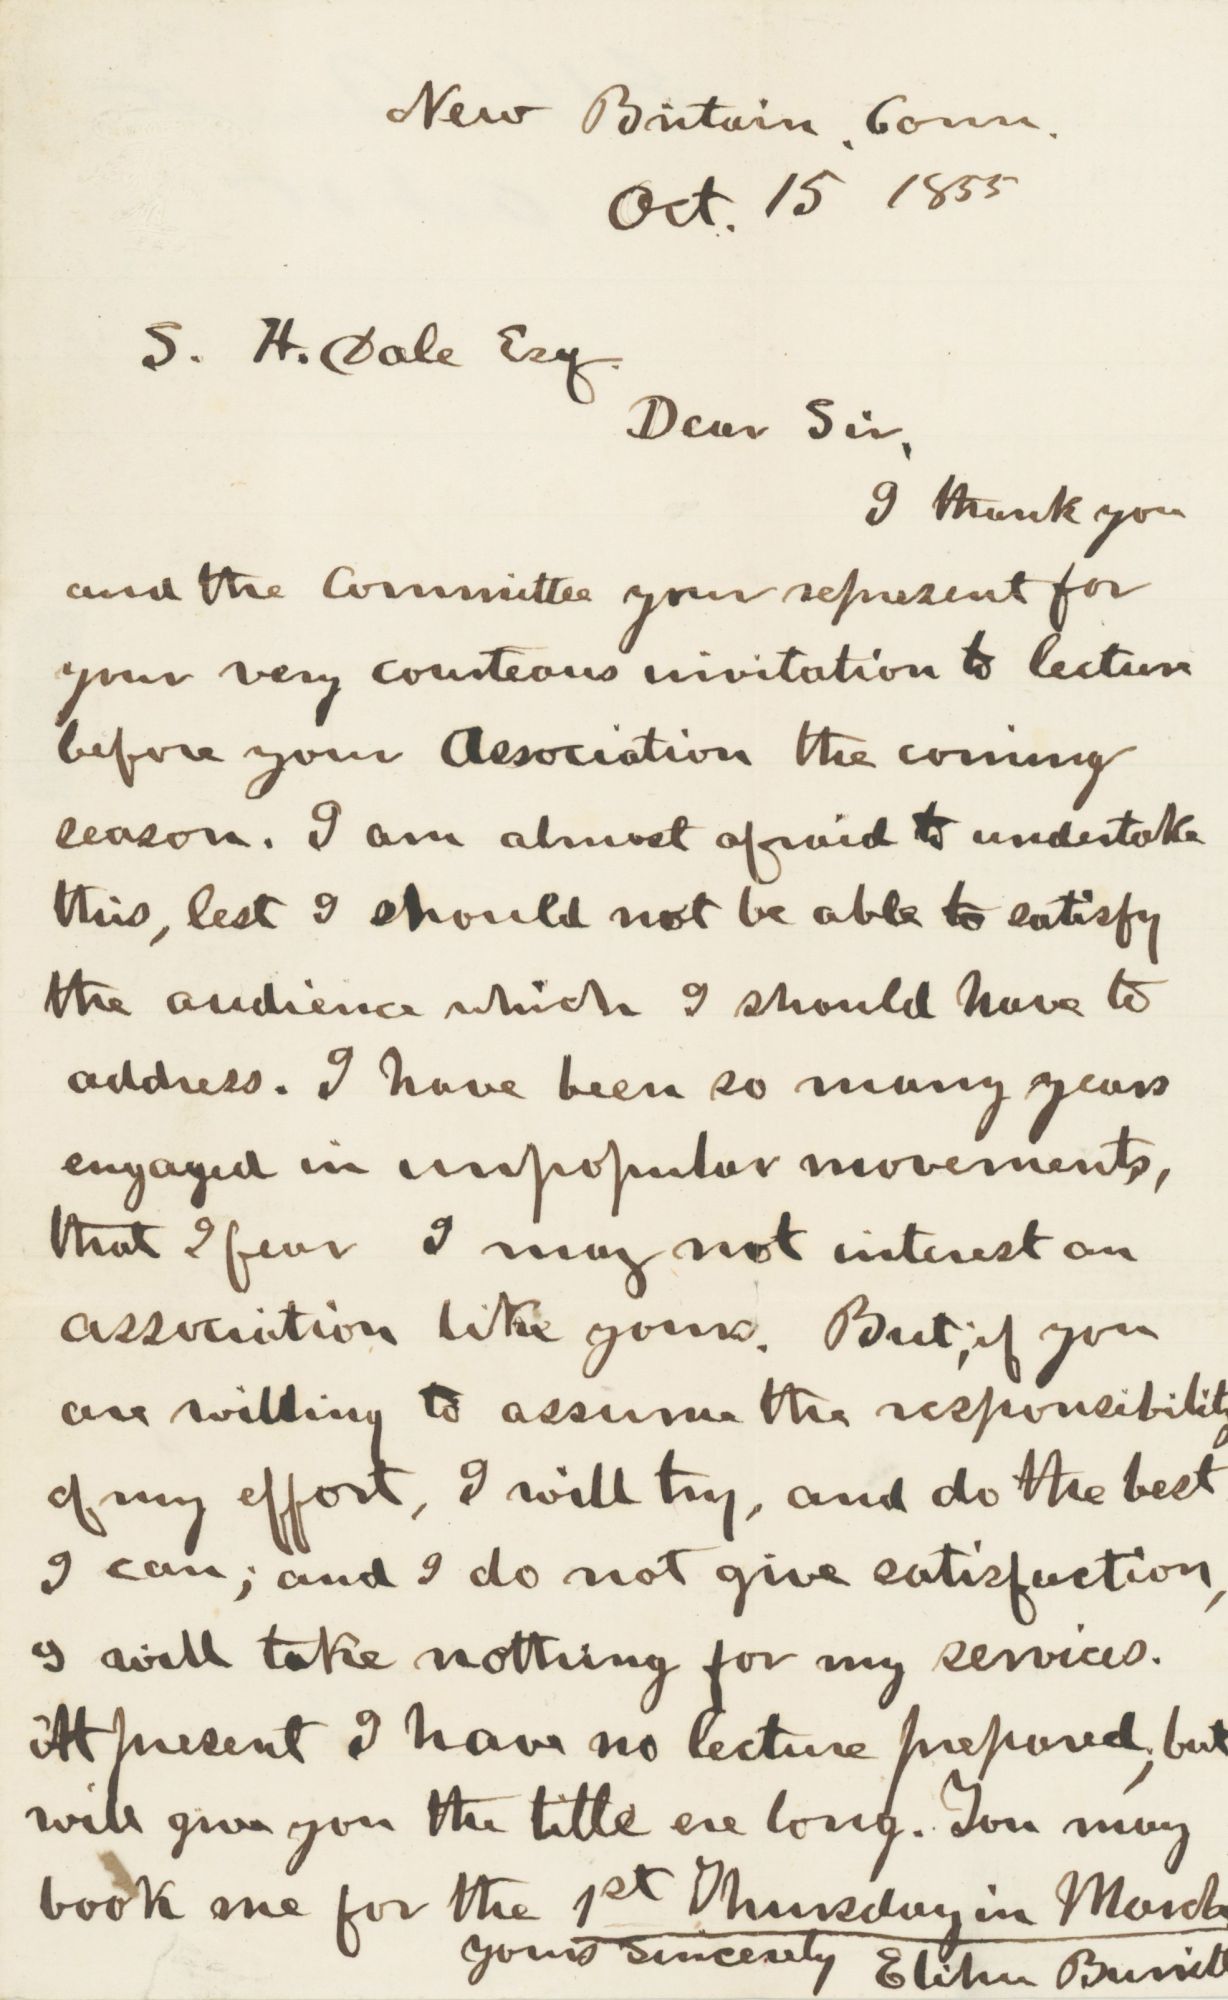 New Britain, Conn.
Oct. 15 1855
S. H. Dale Esq.
Dear Sir,
I thank you
and the Committee your represent for
your very courteous invitation to lecture
before your Association the coming
season. I am almost afraid to undertake
this, lest I should not be able to satisfy
the audience which I should have to
address. I have been so many years
engaged in unpopular movements,
that I fear I may not interest an
association like yours. But, if you
are willing to assume the responsibility
of my effort, I will try, and do the best
I can; and I do not give satisfaction,
I will take nothing for my services.
At present I have no lecture prepared, but
will give you the title ere long. You may
book me for the 1st Thursday in March
yours sincerely Elihu Burritt